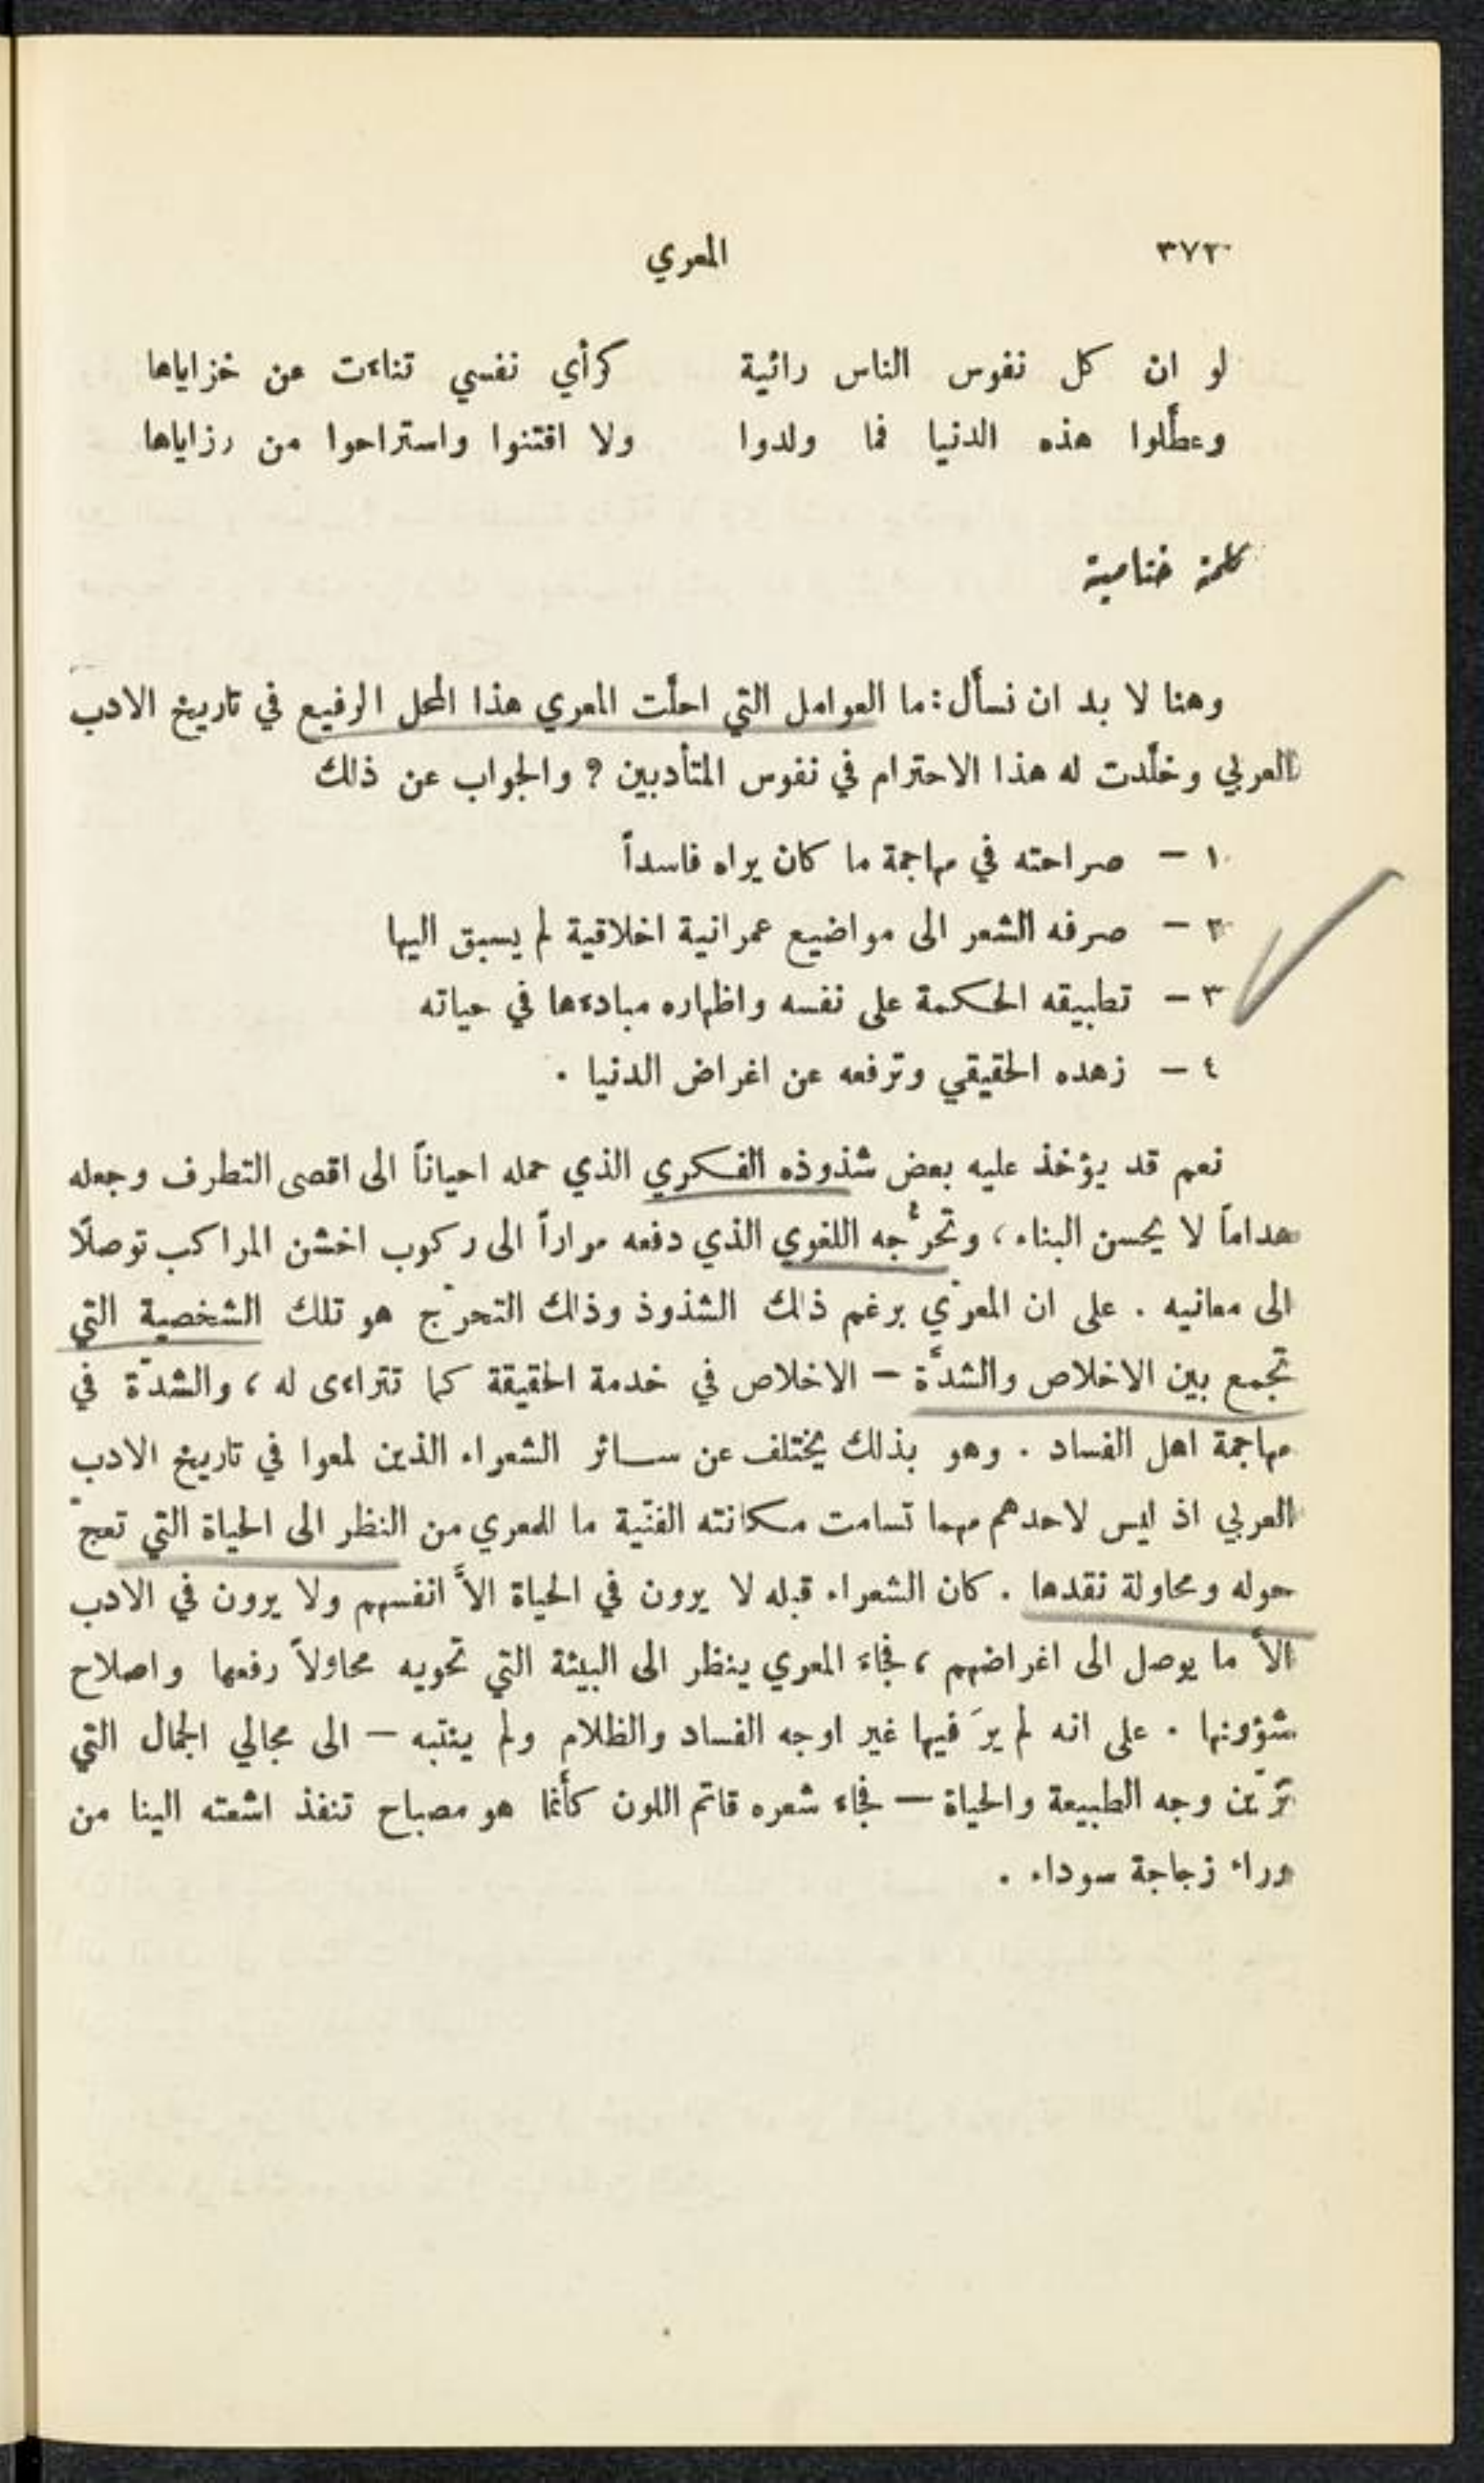 ٣٧٢ المعري
لو ان كل نفوس الناس رائية كرأي نفسي تناءت عن خزاياها
وعطَّلوا هذه الدنيا فما ولدوا ولا اقتنوا واستراحوا من رزاياها
كلمة ختامية
وهنا لا بد ان نسأل : ما العوامل التي احلَّت المعري هذا المحل الرفيع في تاريخ الادب
العربي وخلَّدت له هذا الاحترام في نفوس المتأدبين ؟ والجواب عن ذلك
١ – صراحته في مهاجمة ما كان يراه فاسداً
٢ – صرفه الشعر الى مواضيع عمرانية اخلاقية لم يسبق اليها
٣ – تطبيقه الحكمة على نفسه واظهاره مبادءها في حياته
٤ – زهده الحقيقي وترفعه عن اغراض الدنيا .
نعم قد يؤخذ عليه بعض شذوذه الفكري الذي حمله احياناً الى اقصى التطرف وجعله
هداماً لا يحسن البناء ، وتحرُّجه اللغوي الذي دفعه مراراً الى ركوب اخشن المراكب توصلًا
الى معانيه . على ان المعرّي برغم ذلك الشذوذ وذلك التحرّج هو تلك الشخصية التي
تجمع بين الاخلاص والشدَّة – الاخلاص في خدمة الحقيقة كما تتراءى له ، والشدّة في
مهاجمة اهل الفساد . وهو بذلك يختلف عن سائر الشعراء الذين لمعوا في تاريخ الادب
العربي اذ ليس لاحدهم مهما تسامت مكانته الفنّية ما للمعري من النظر الى الحياة التي تعجّ
حوله ومحاولة نقدها . كان الشعراء قبله لا يرون في الحياة الاَّ انفسهم ولا يرون في الادب
الاَّ ما يوصل الى اغراضهم ، فجاءَ المعري ينظر الى البيئة التي تحويه محاولاً رفعها واصلاح
شؤونها . على انه لم يرَ فيها غير اوجه الفساد والظلام ولم ينتبه – الى مجالي الجمال التي
تزّين وجه الطبيعة والحياة – فجاء شعره قاتم اللون كأنما هو مصباح تنفذ اشعته الينا من
وراء زجاجة سوداء .